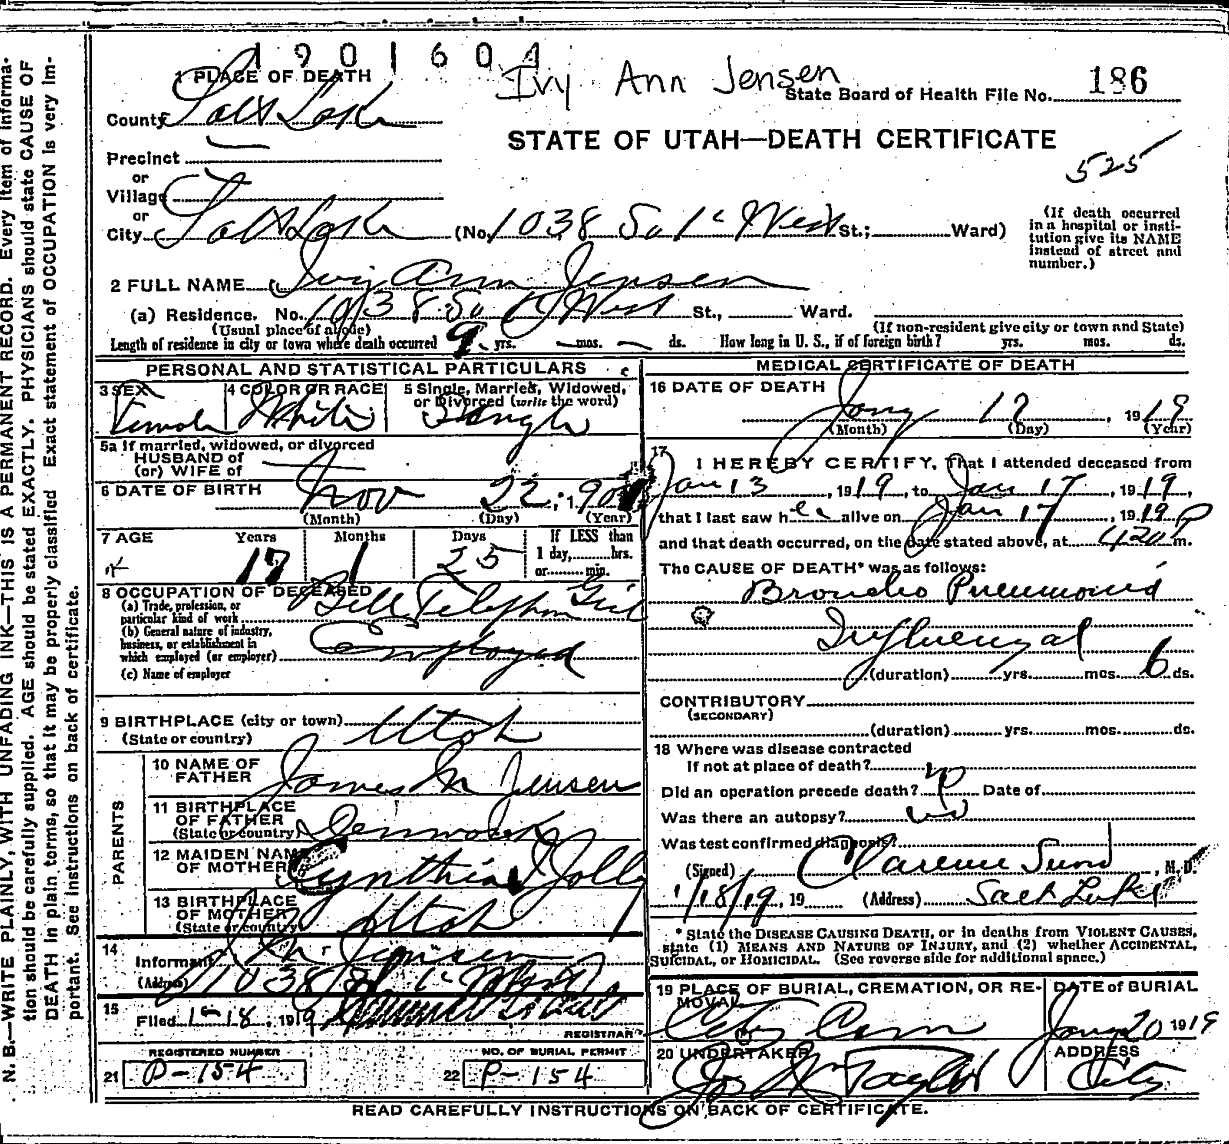 1901604
Ivy Ann Jensen
1 PLACE OF DEATH
State Board of Health File No. 186
County Salt Lake
STATE OF UTAH—DEATH CERTIFICATE
Precinct
525
or
Village
or
City Salt Lake (No. 1038 So 1st West St.; Ward)
(If death occurred in a hospital or institution give its NAME instead of street and number.)
2 FULL NAME Ivy Ann Jensen
(a) Residence. No. 1038 So 1 West St., Ward.
(Usual place of abode) (If non-resident give city or town and State)
Length of residence in city or town where death occurred 9 yrs. — mos. — ds. How long in U. S., if of foreign birth? yrs. mos. ds.
PERSONAL AND STATISTICAL PARTICULARS
3 SEX Female
4 COLOR OR RACE White
5 Single, Married, Widowed, or Divorced (write the word) Single
5a If married, widowed, or divorced
HUSBAND of
(or) WIFE of
6 DATE OF BIRTH Nov 22, 1901
(Month) (Day) (Year)
7 AGE Years Months Days If LESS than
17 1 25 1 day, hrs.
or min.
8 OCCUPATION OF DECEASED
(a) Trade, profession, or
particular kind of work Bell Telephone Girl
(b) General nature of industry,
business, or establishment in
which employed (or employer) Employed
(c) Name of employer
9 BIRTHPLACE (city or town) Utah
(State or country)
PARENTS
10 NAME OF
FATHER James M Jensen
11 BIRTHPLACE
OF FATHER
(State or country) Denmark
12 MAIDEN NAME
OF MOTHER Cynthia Jolly
13 BIRTHPLACE
OF MOTHER
(State or country) Utah
14
Informant Jensen
(Address) 1038 So 1st West
15
Filed 1-18, 1919
REGISTRAR
REGISTERED NUMBER
21 P-154
NO. OF BURIAL PERMIT
22 P-154
MEDICAL CERTIFICATE OF DEATH
16 DATE OF DEATH
Jany 17, 1919
(Month) (Day) (Year)
17
I HEREBY CERTIFY, That I attended deceased from
Jan 13, 1919, to Jan 17, 1919,
that I last saw her alive on Jan 17, 1919
and that death occurred, on the date stated above, at 420 P m.
The CAUSE OF DEATH* was as follows:
Broncho Pneumonia
Influenzal
(duration) yrs. mos. 6 ds.
CONTRIBUTORY
(SECONDARY)
(duration) yrs. mos. ds.
18 Where was disease contracted
If not at place of death?
Did an operation precede death? Date of
Was there an autopsy? no
Was test confirmed diagnosis?
(Signed) Clarence Snow, M. D.
1/18/19, 19 (Address) Salt Lake
* State the DISEASE CAUSING DEATH, or in deaths from VIOLENT CAUSES,
state (1) MEANS AND NATURE OF INJURY, and (2) whether ACCIDENTAL,
SUICIDAL, or HOMICIDAL. (See reverse side for additional space.)
19 PLACE OF BURIAL, CREMATION, OR REMOVAL
City Cem
DATE of BURIAL
Jany 20 1919
20 UNDERTAKER
Jos Wm Taylor
ADDRESS
City
READ CAREFULLY INSTRUCTIONS ON BACK OF CERTIFICATE.
N. B.—WRITE PLAINLY, WITH UNFADING INK—THIS IS A PERMANENT RECORD. Every item of information should be carefully supplied. AGE should be stated EXACTLY. PHYSICIANS should state CAUSE OF DEATH in plain terms, so that it may be properly classified. Exact statement of OCCUPATION is very important. See instructions on back of certificate.